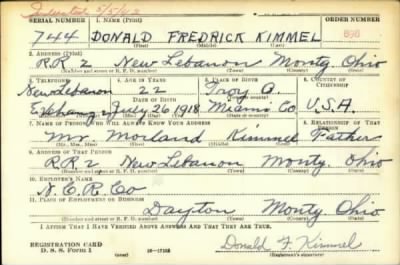 Inducted 3/5/42
SERIAL NUMBER 1. NAME (Print) ORDER NUMBER
744 DONALD FREDRICK KIMMEL 898
(First) (Middle) (Last)
2. ADDRESS (Print)
R R 2 New Lebanon Montg. Ohio
(Number and street or R. F. D. number) (Town) (County) (State)
3. TELEPHONE 4. AGE IN YEARS 5. PLACE OF BIRTH 6. COUNTRY OF CITIZENSHIP
New Lebanon 22 Troy O.
DATE OF BIRTH
Exchange July 26 1918 Miami Co. U.S.A.
7. NAME OF PERSON WHO WILL ALWAYS KNOW YOUR ADDRESS 8. RELATIONSHIP OF THAT PERSON
Mr. Morland Kimmel Father
(Mr., Mrs., Miss) (First) (Middle) (Last)
9. ADDRESS OF THAT PERSON
R R 2 New Lebanon Montg. Ohio
(Number and street or R. F. D. number) (Town) (County) (State)
10. EMPLOYER'S NAME
N. C. R. Co
11. PLACE OF EMPLOYMENT OR BUSINESS
Dayton Montg. Ohio
(Number and street or R. F. D. number) (Town) (County) (State)
I AFFIRM THAT I HAVE VERIFIED ABOVE ANSWERS AND THAT THEY ARE TRUE.
REGISTRATION CARD
D. S. S. Form 1 16-17105 Donald F. Kimmel
(Registrant's signature)